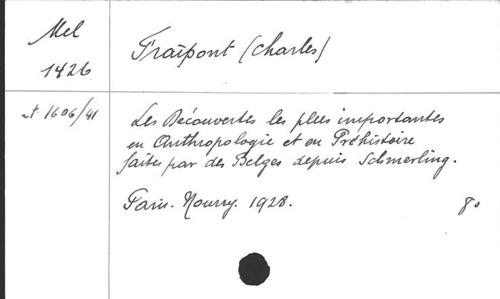 Mel
1426
Fraipont (Charles)
et 1606/41
Les Découvertes les plus importantes
en Anthropologie et en Préhistoire
faites par des Belges depuis Schmerling.
Paris. Nourry. 1928.
8°